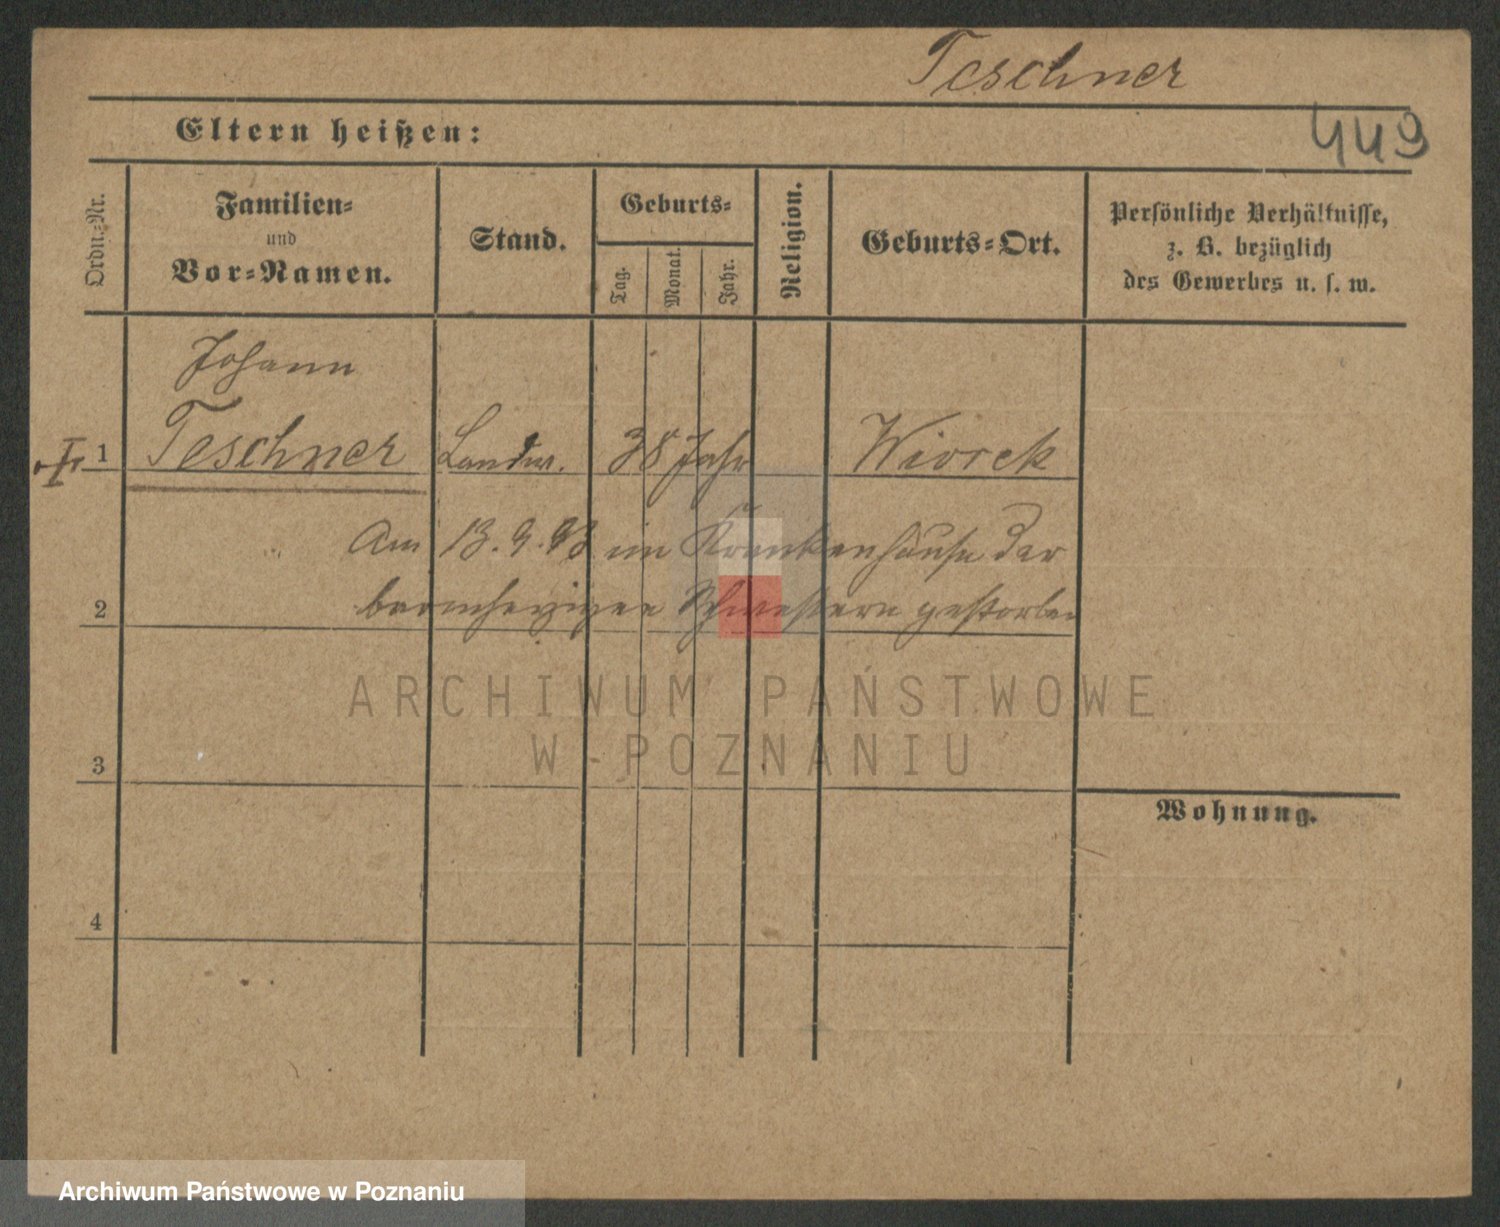 Teschner
449
Eltern heißen:
Ordn.-Nr.
Familien-
und
Vor-Namen.
Stand.
Geburts-
Tag.
Monat.
Jahr.
Religion.
Geburts-Ort.
Persönliche Verhältnisse,
z. B. bezüglich
des Gewerbes u. s. w.
Johann
1 Teschner Landw. 38 Jahr Wiorek
Am 13. 9. 93 im Krankenhause der
2 barmherzigen Schwestern gestorben
ARCHIWUM PAŃSTWOWE
W POZNANIU
3
Wohnung.
4
Archiwum Państwowe w Poznaniu